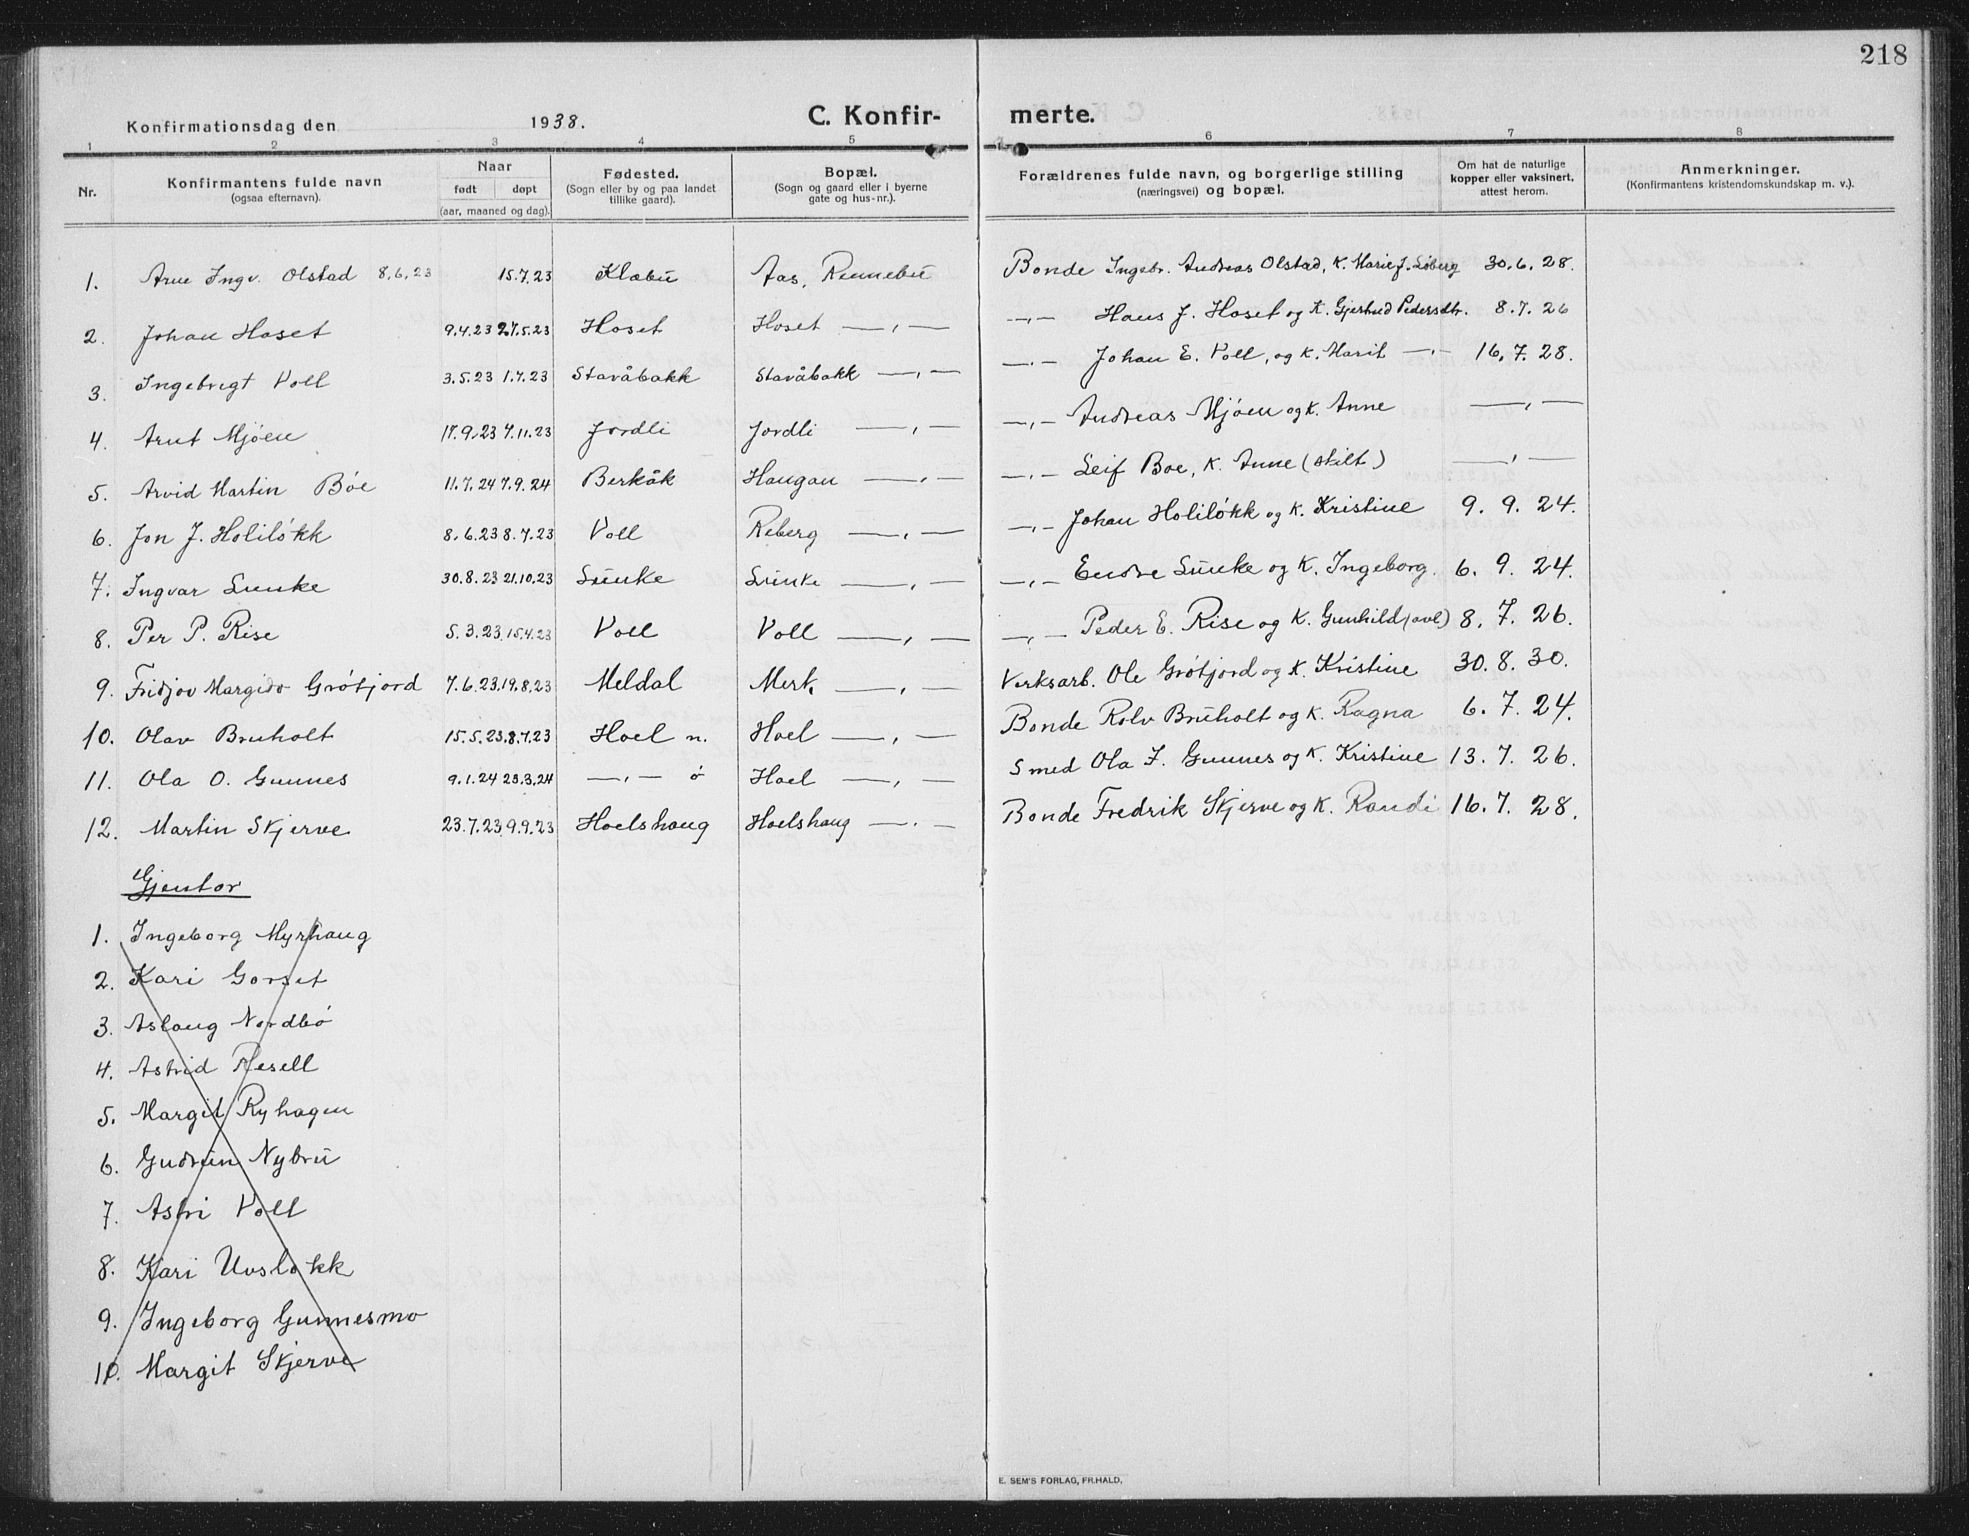 218
Konfirmationsdag den 1938. C. Konfir- merte.
1 2 3 4 5 6 7 8
Nr. Konfirmantens fulde navn (ogsaa efternavn). Naar født døpt (aar, maaned og dag). Fødested. (Sogn eller by og paa landet tillike gaard). Bopæl. (Sogn og gaard eller i byerne gate og hus-nr.). Forældrenes fulde navn, og borgerlige stilling (næringsvei) og bopæl. Om hat de naturlige kopper eller vaksinert, attest herom. Anmerkninger. (Konfirmantens kristendomskundskap m. v.).
1. Arne Ingv. Olstad 8.6.23 15.7.23 Klæbu Aas, Rennebu Bonde Ingebr. Andreas Olstad, K. Marie J. Løberg 30.6.28.
2. Johan Hoset 9.4.23 27.5.23 Hoset Hoset —,— —,— Hans J. Hoset og K. Gjertrud Pedersdtr. 8.7.26
3. Ingebrigt Voll 3.5.23 1.7.23 Stavåbakk Stavåbakk —,— —,— Johan E. Voll, og K. Marit —,— 16.7.28.
4. Arnt Mjøen 17.9.23 4.11.23 Jordli Jordli —,— —,— Andreas Mjøen og K. Anne —,—
5. Arvid Martin Bøe 11.7.24 7.9.24 Berkåk Haugan —,— —,— Leif Boe, K. Anne (skilt) —,—
6. Jon J. Holiløkk 8.6.23 8.7.23 Voll Reberg —,— —,— Johan Holiløkk og K. Kristine 9.9.24.
7. Ingvar Lunke 30.8.23 21.10.23 Lunke Lunke —,— —,— Endre Lunke og K. Ingeborg. 6.9.24.
8. Per P. Rise 5.3.23 15.4.23 Voll Voll —,— —,— Peder E. Rise og K. Gunhild (avl) 8.7.26.
9. Fridjov Margido Grøtjord 7.6.23 19.8.23 Meldal Merk, —,— Verksarb. Ole Grøtjord og K. Kristine 30.8.30.
10. Olav Bruholt 15.5.23. 8.7.23 Hoel n. Hoel —,— Bonde Rolv Bruholt og K. Ragna 6.7.24.
11. Ola O. Gunnes 9.1.24 23.3.24 —,— ø Hoel —,— Smed Ola J. Gunnes og K. Kristine 13.7.26.
12. Martin Skjerve 23.7.23 9.9.23 Hoelshaug Hoelshaug —,— Bonde Fredrik Skjerve og K. Randi 16.7.28.
Gjentor
1. Ingeborg Myrhaug
2. Kari Gorset
3. Aslaug Nordbø
4. Astrid Resell
5. Margit Ryhagen
6. Gudrun Nybru
7. Astri Voll
8. Kari Uvsløkk
9. Ingeborg Gunnesmo
10. Margit Skjerve
E. SEM'S FORLAG, FR.HALD.